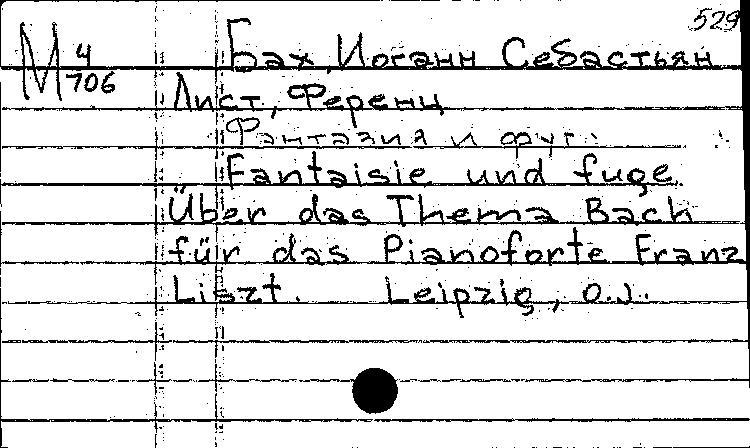 529
М 4/706
Бах, Иоганн Себастьян
Лист, Ференц
Фантазия и фуг
Fantaisie und fuge
Über das Thema Bach
für das Pianoforte Franz
Liszt. Leipzig, o.J.